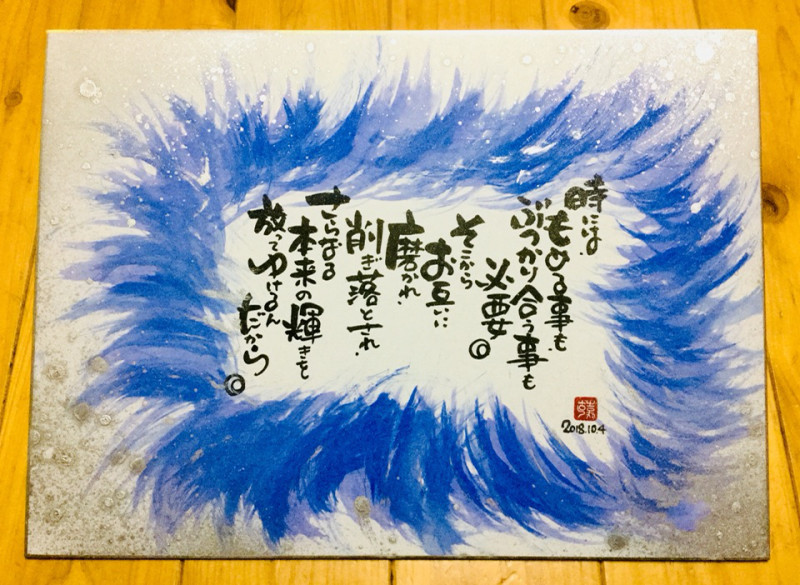 時には
もめる事も
ぶつかり合う事も
必要。
そこから
お互いに
磨かれ
削ぎ落とされ
さらなる
本来の輝きを
放ってゆけるん
だから。
2018.10.4